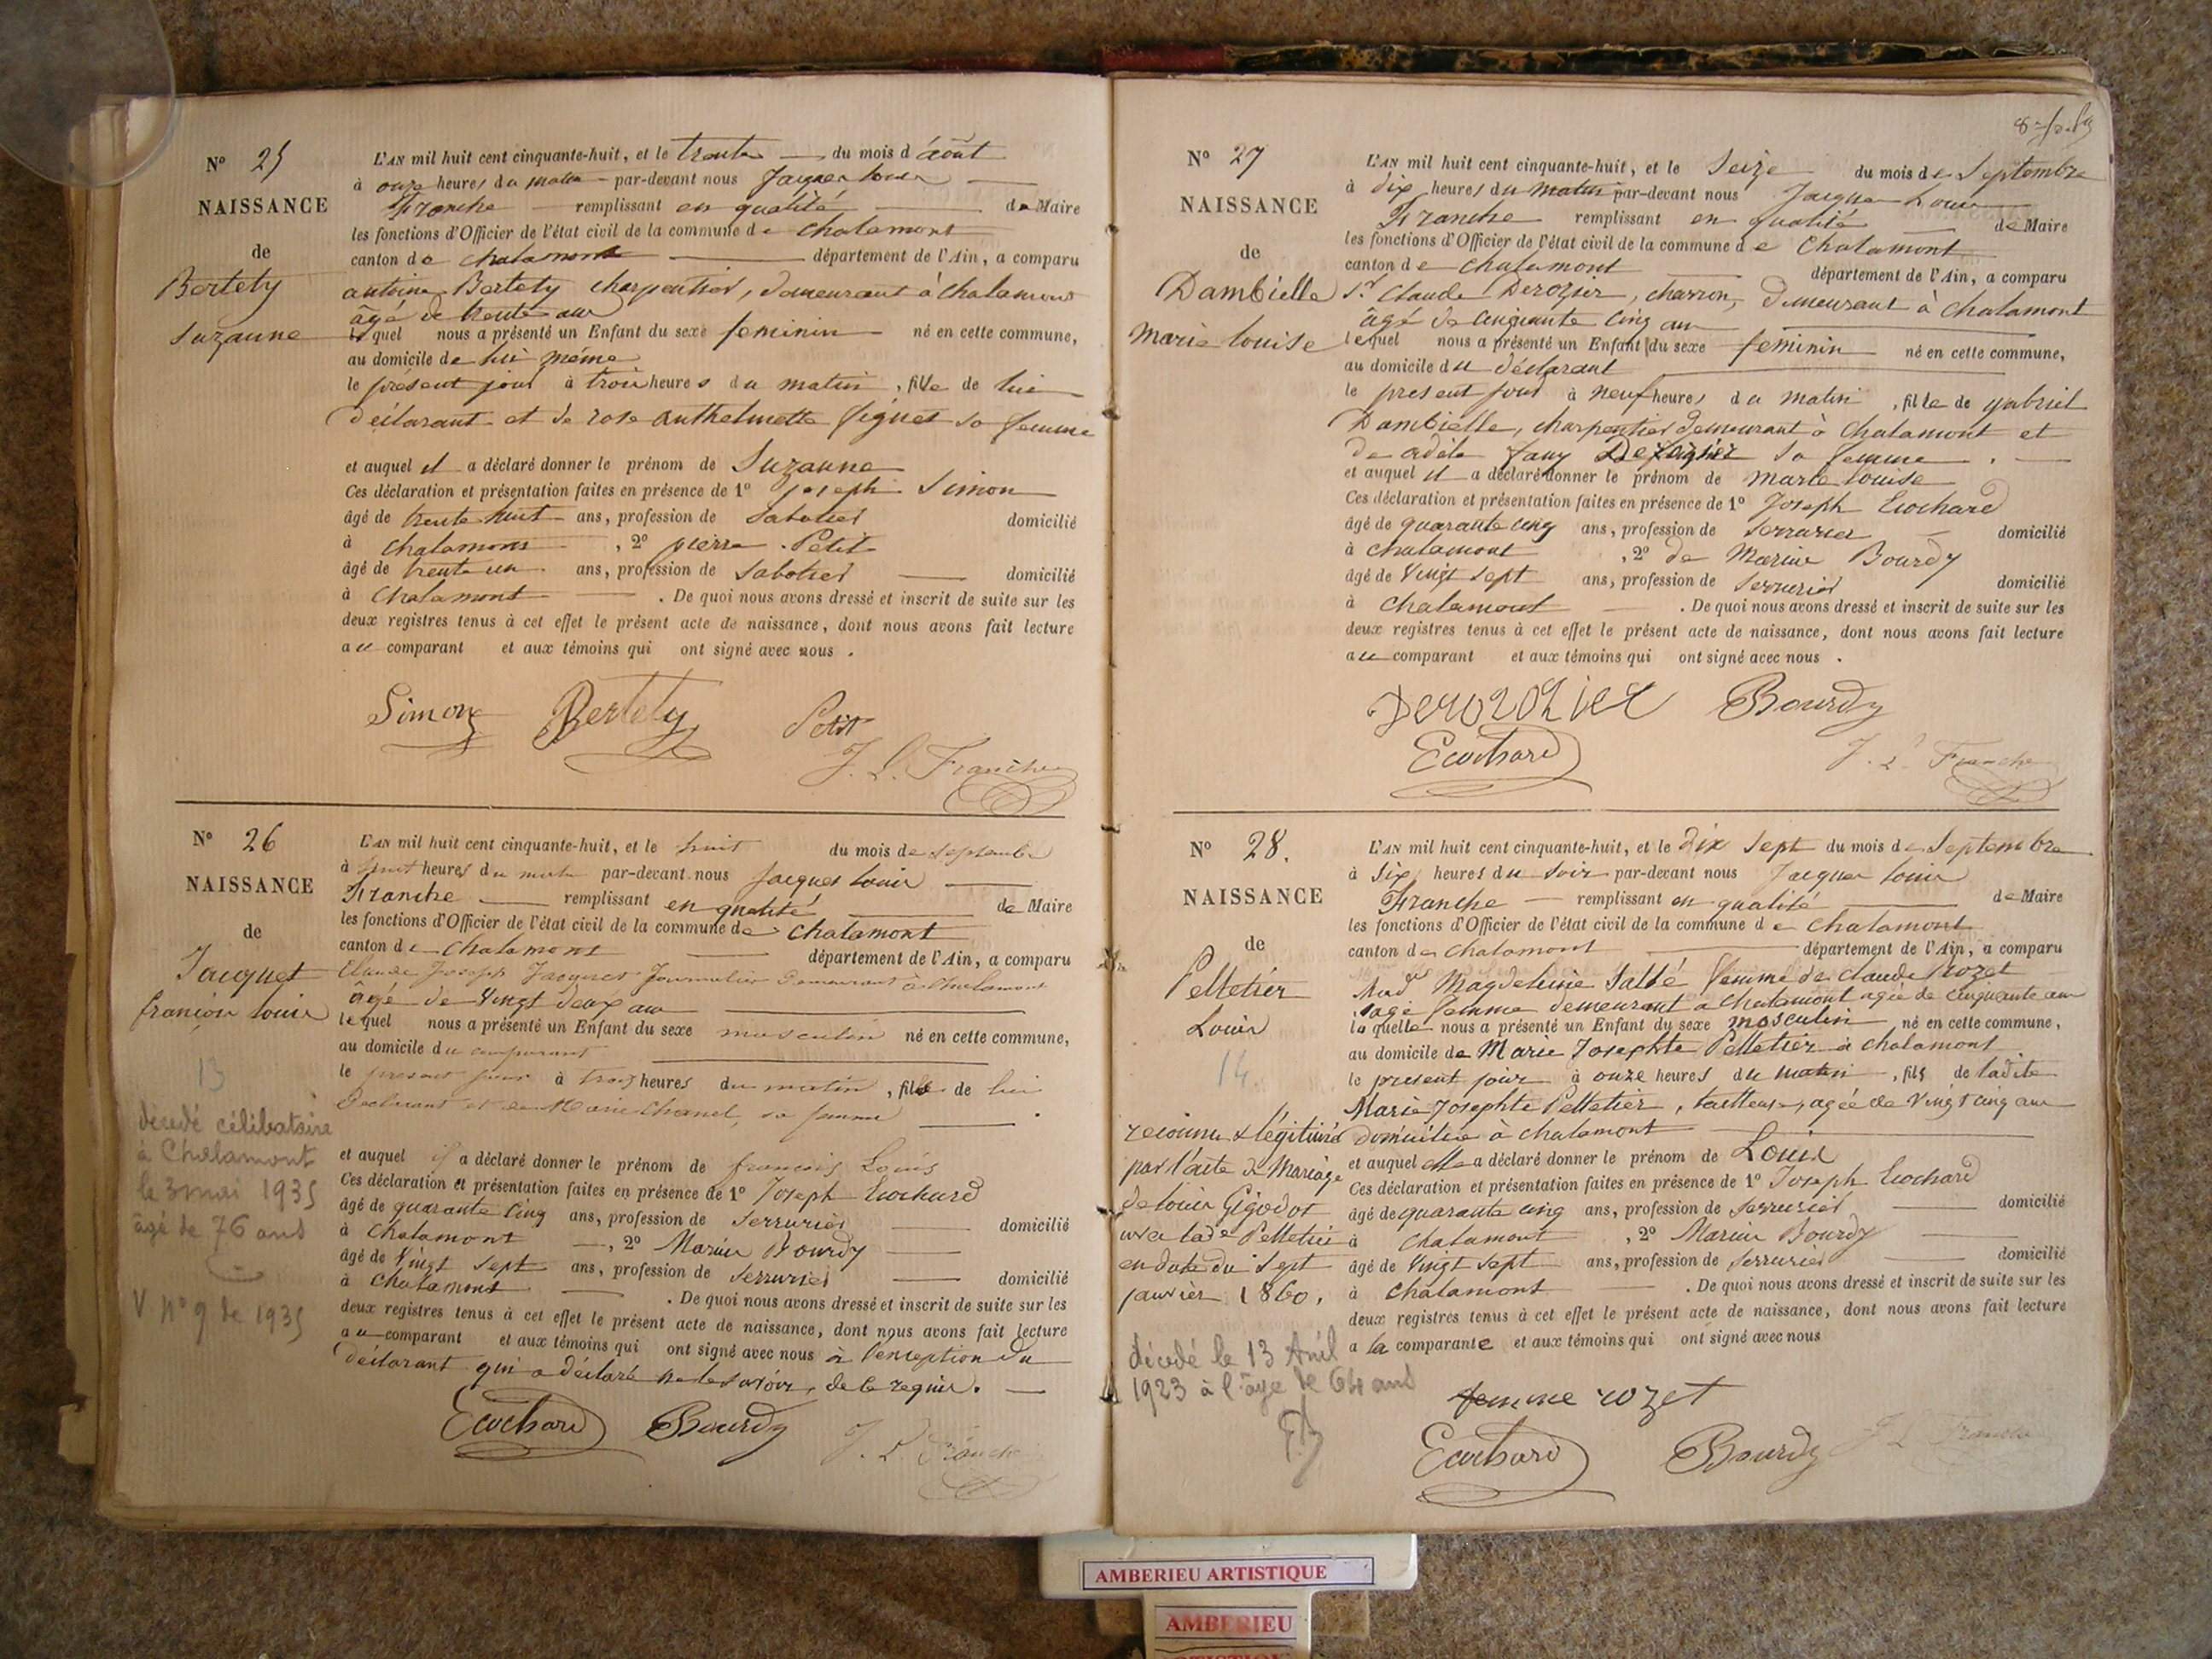 N° 25
NAISSANCE
de
Bertety
Suzanne
L'AN mil huit cent cinquante-huit, et le trente du mois d'août
à onze heures du matin par-devant nous Jacques Louis
Franche remplissant en qualité de Maire
les fonctions d'Officier de l'état civil de la commune de Chalamont
canton de Chalamont département de l'Ain, a comparu
antoine Bertety charpentier, demeurant à Chalamont
âgé de trente ans
lequel nous a présenté un Enfant du sexe feminin né en cette commune,
au domicile de lui même
le présent jour à trois heures du matin, fille de lui
déclarant et de rose anthelmette sa femme
et auquel il a déclaré donner le prénom de Suzanne
Ces déclaration et présentation faites en présence de 1° Joseph Simon
âgé de trente huit ans, profession de Sabotier domicilié
à Chalamont, 2° pierre Petit
âgé de trente un ans, profession de Sabotier domicilié
à Chalamont. De quoi nous avons dressé et inscrit de suite sur les
deux registres tenus à cet effet le présent acte de naissance, dont nous avons fait lecture
au comparant et aux témoins qui ont signé avec nous.
Simon Bertety Petit
J. L. Franche
N° 26
NAISSANCE
de
Jacquet
françois Louis
13
décédé célibataire
à Chalamont
le 3 mai 1935
âgé de 76 ans
V n° 9 de 1935
L'AN mil huit cent cinquante-huit, et le huit du mois de septembre
à huit heures du matin par-devant nous Jacques Louis
Franche remplissant en qualité de Maire
les fonctions d'Officier de l'état civil de la commune de Chalamont
canton de Chalamont département de l'Ain, a comparu
Claude Joseph Jacquet Journalier demeurant à Chalamont
âgé de vingt deux ans
lequel nous a présenté un Enfant du sexe masculin né en cette commune,
au domicile du comparant
le présent jour à trois heures du matin, fils de lui
Déclarant et de Marie Chanel, sa femme.
et auquel il a déclaré donner le prénom de françois Louis
Ces déclaration et présentation faites en présence de 1° Joseph Ecochard
âgé de quarante cinq ans, profession de serrurier domicilié
à Chalamont, 2° Marin Bourdy
âgé de vingt sept ans, profession de serrurier domicilié
à Chalamont. De quoi nous avons dressé et inscrit de suite sur les
deux registres tenus à cet effet le présent acte de naissance, dont nous avons fait lecture
au comparant et aux témoins qui ont signé avec nous à l'exception du
déclarant qui a déclaré ne le savoir, de ce requis.
Ecochard Bourdy J. L. Franche
N° 27
NAISSANCE
de
Dambielle
marie louise
L'AN mil huit cent cinquante-huit, et le Seize du mois de Septembre
à dix heures du matin par-devant nous Jacques Louis
Franche remplissant en qualité de Maire
les fonctions d'Officier de l'état civil de la commune de Chalamont
canton de Chalamont département de l'Ain, a comparu
Sr Claude Derozier, charron, demeurant à Chalamont
âgé de cinquante cinq ans
lequel nous a présenté un Enfant du sexe feminin né en cette commune,
au domicile du déclarant
le present jour à neuf heures du matin, fille de gabriel
Dambielle, charpentier demeurant à Chalamont et
de adèle fany sa femme.
et auquel il a déclaré donner le prénom de marie louise
Ces déclaration et présentation faites en présence de 1° Joseph Ecochard
âgé de quarante cinq ans, profession de serrurier domicilié
à Chalamont, 2° de Marin Bourdy
âgé de vingt sept ans, profession de serrurier domicilié
à Chalamont. De quoi nous avons dressé et inscrit de suite sur les
deux registres tenus à cet effet le présent acte de naissance, dont nous avons fait lecture
au comparant et aux témoins qui ont signé avec nous.
Bourdy
Ecochard J. L. Franche
N° 28.
NAISSANCE
de
Pelletier
Louis
14
reconnu & légitimé
par l'acte de Mariage
de louis Gigodot
avec lade Pelletier
en date du sept
janvier 1860.
décédé le 13 Avril
1923 à l'âge de 64 ans
L'AN mil huit cent cinquante-huit, et le dix sept du mois de Septembre
à six heures du soir par-devant nous Jacques Louis
Franche remplissant en qualité de Maire
les fonctions d'Officier de l'état civil de la commune de Chalamont
canton de Chalamont département de l'Ain, a comparu
Magdeleine femme de Claude Rozet
sage femme demeurant à Chalamont agée de cinquante ans
laquelle nous a présenté un Enfant du sexe masculin né en cette commune,
au domicile de Marie Josephte Pelletier à Chalamont
le present jour à onze heures du matin, fils de ladite
Marie Josephte Pelletier, tailleuse, agée de vingt cinq ans
domiciliée à Chalamont
et auquel elle a déclaré donner le prénom de Louis
Ces déclaration et présentation faites en présence de 1° Joseph Ecochard
âgé de quarante cinq ans, profession de serrurier domicilié
à Chalamont, 2° Marin Bourdy
âgé de vingt sept ans, profession de serrurier domicilié
à Chalamont. De quoi nous avons dressé et inscrit de suite sur les
deux registres tenus à cet effet le présent acte de naissance, dont nous avons fait lecture
a la comparante et aux témoins qui ont signé avec nous
femme rozet
Ecochard Bourdy J. L. Franche
AMBERIEU ARTISTIQUE
AMBERIEU